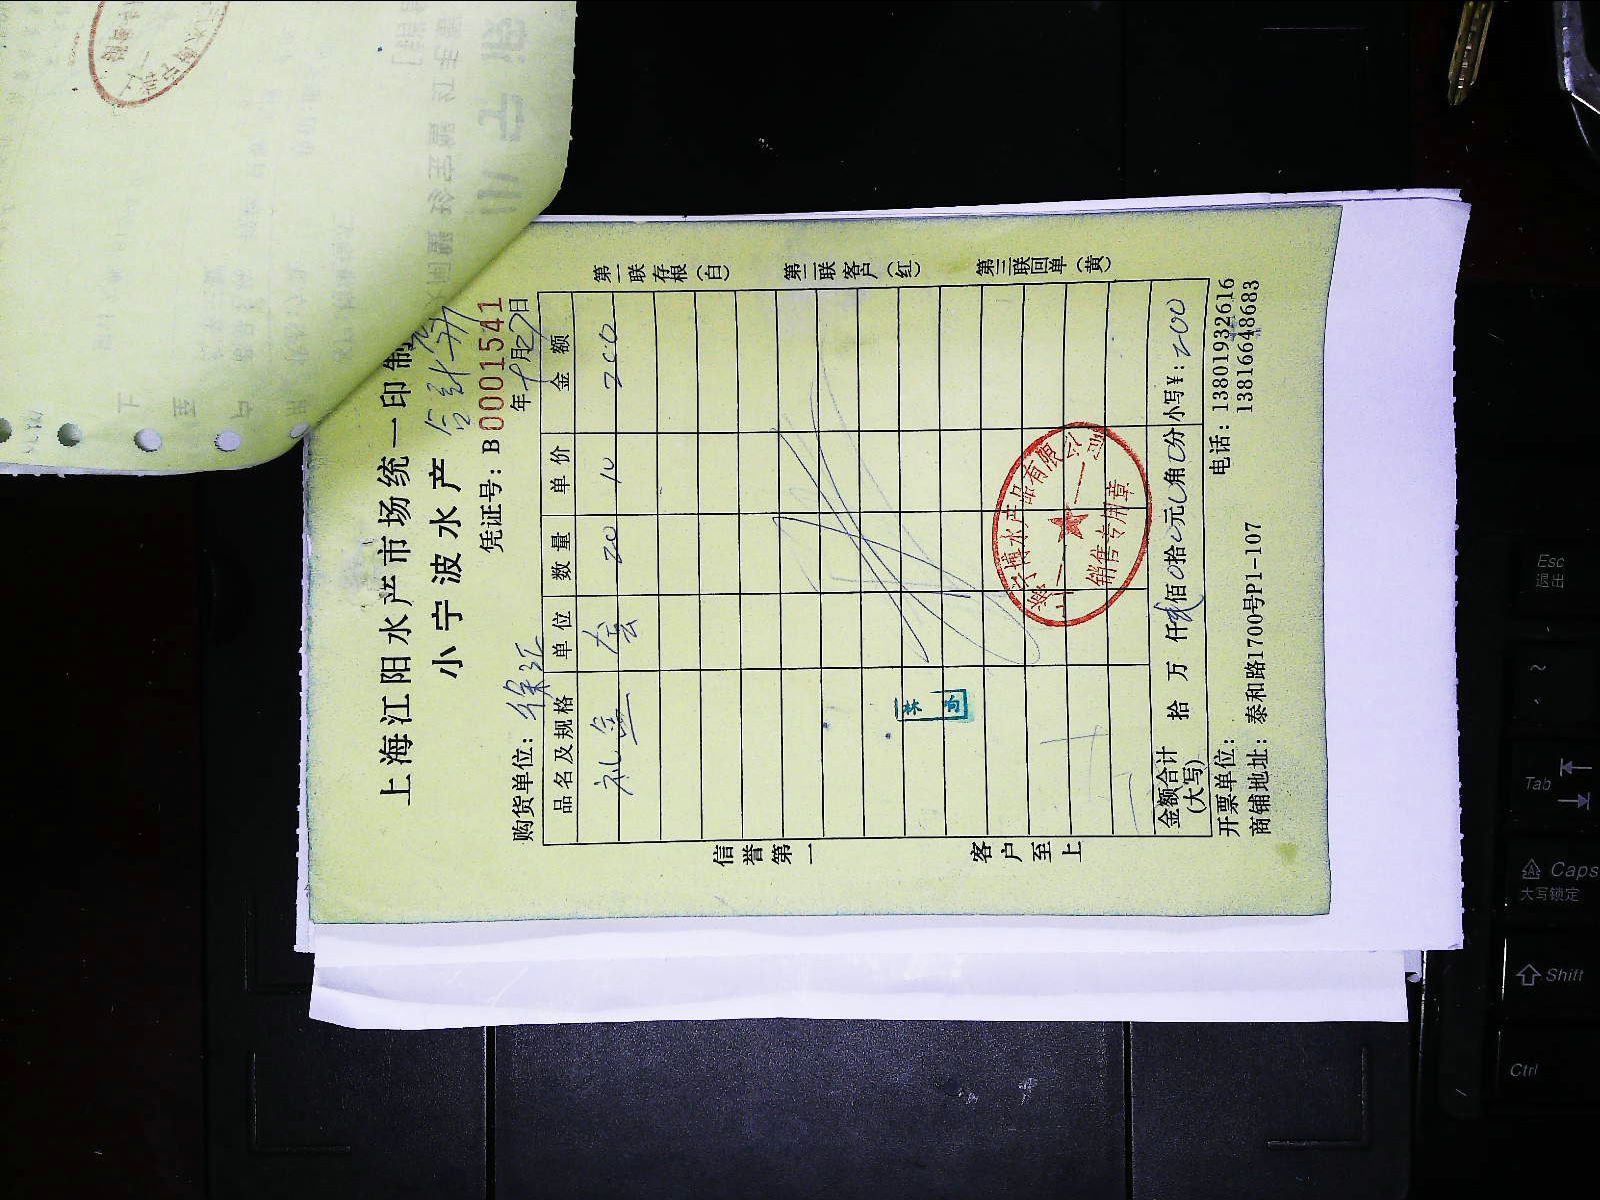 上海江阳水产市场统一印制
小宁波水产
凭证号：B 0001541
购货单位：徐汇 年 十月27日
品名及规格 单位 数量 单价 金额
礼盒 套 20 10 200
金额合计(大写) 拾 万 仟 贰佰0拾0元0角0分 小写¥：200
开票单位： 电话：13801932616
商铺地址：泰和路1700号P1-107 13816648683
信誉第一 客户至上
第一联存根（白） 第二联客户（红） 第三联回单（黄）
博水产品有限公司
销售专用章
Esc
退出
Tab
Caps
大写锁定
Shift
Ctrl